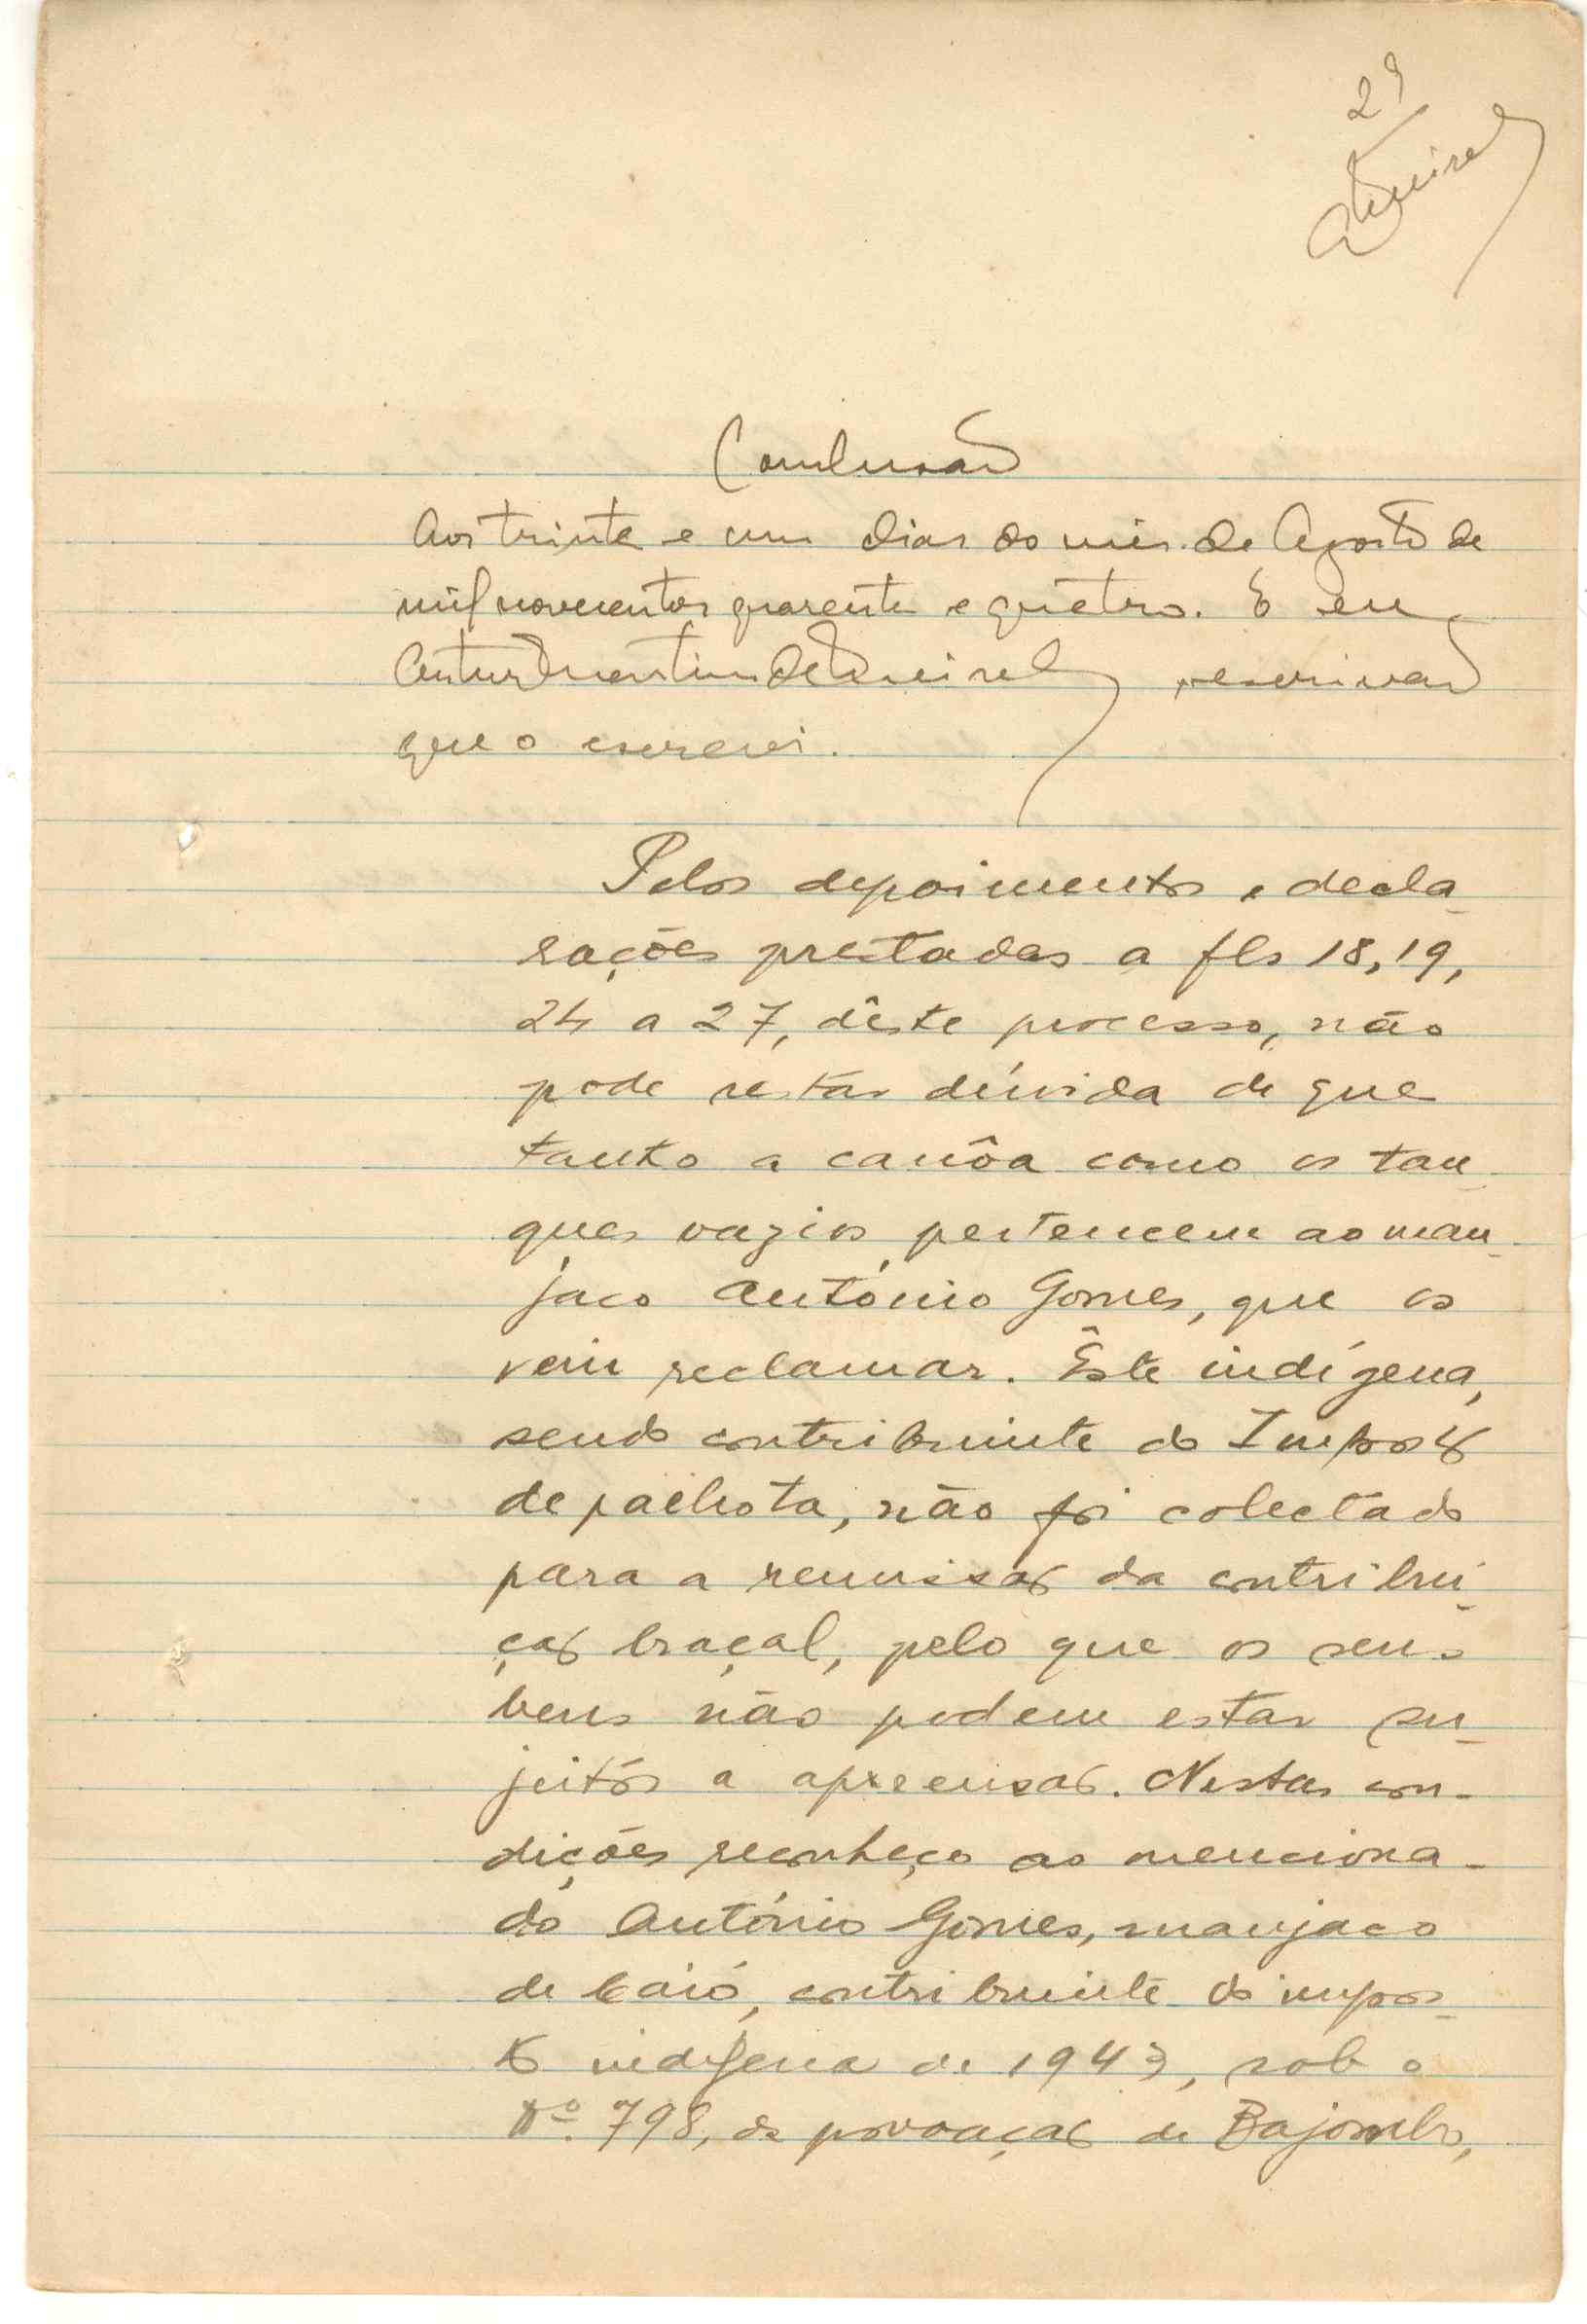 29
Conclusão
Aos trinta e um dias do mês de Agosto de
mil novecentos quarenta e quatro. E eu
escrivão
que o escrevi.
Pelos depoimentos e decla-
rações prestadas a fls 18, 19,
24 a 27, dêste processo, não
pode restar dúvida de que
tanto a canôa como os tan-
ques vazios, pertencem ao man-
jaco António Gomes, que os
vem reclamar. Êste indígena,
sendo contribuinte do Imposto
de palhota, não foi colectado
para a remissão da contribui-
ção braçal, pelo que os seus
bens não podem estar su-
jeitos a apreensão. Nestas con-
dições reconheço ao menciona-
do António Gomes, manjaco
de Caió, contribuinte do impos-
to indígena de 1943, sob o
nº. 798, da povoação de Bajombo,